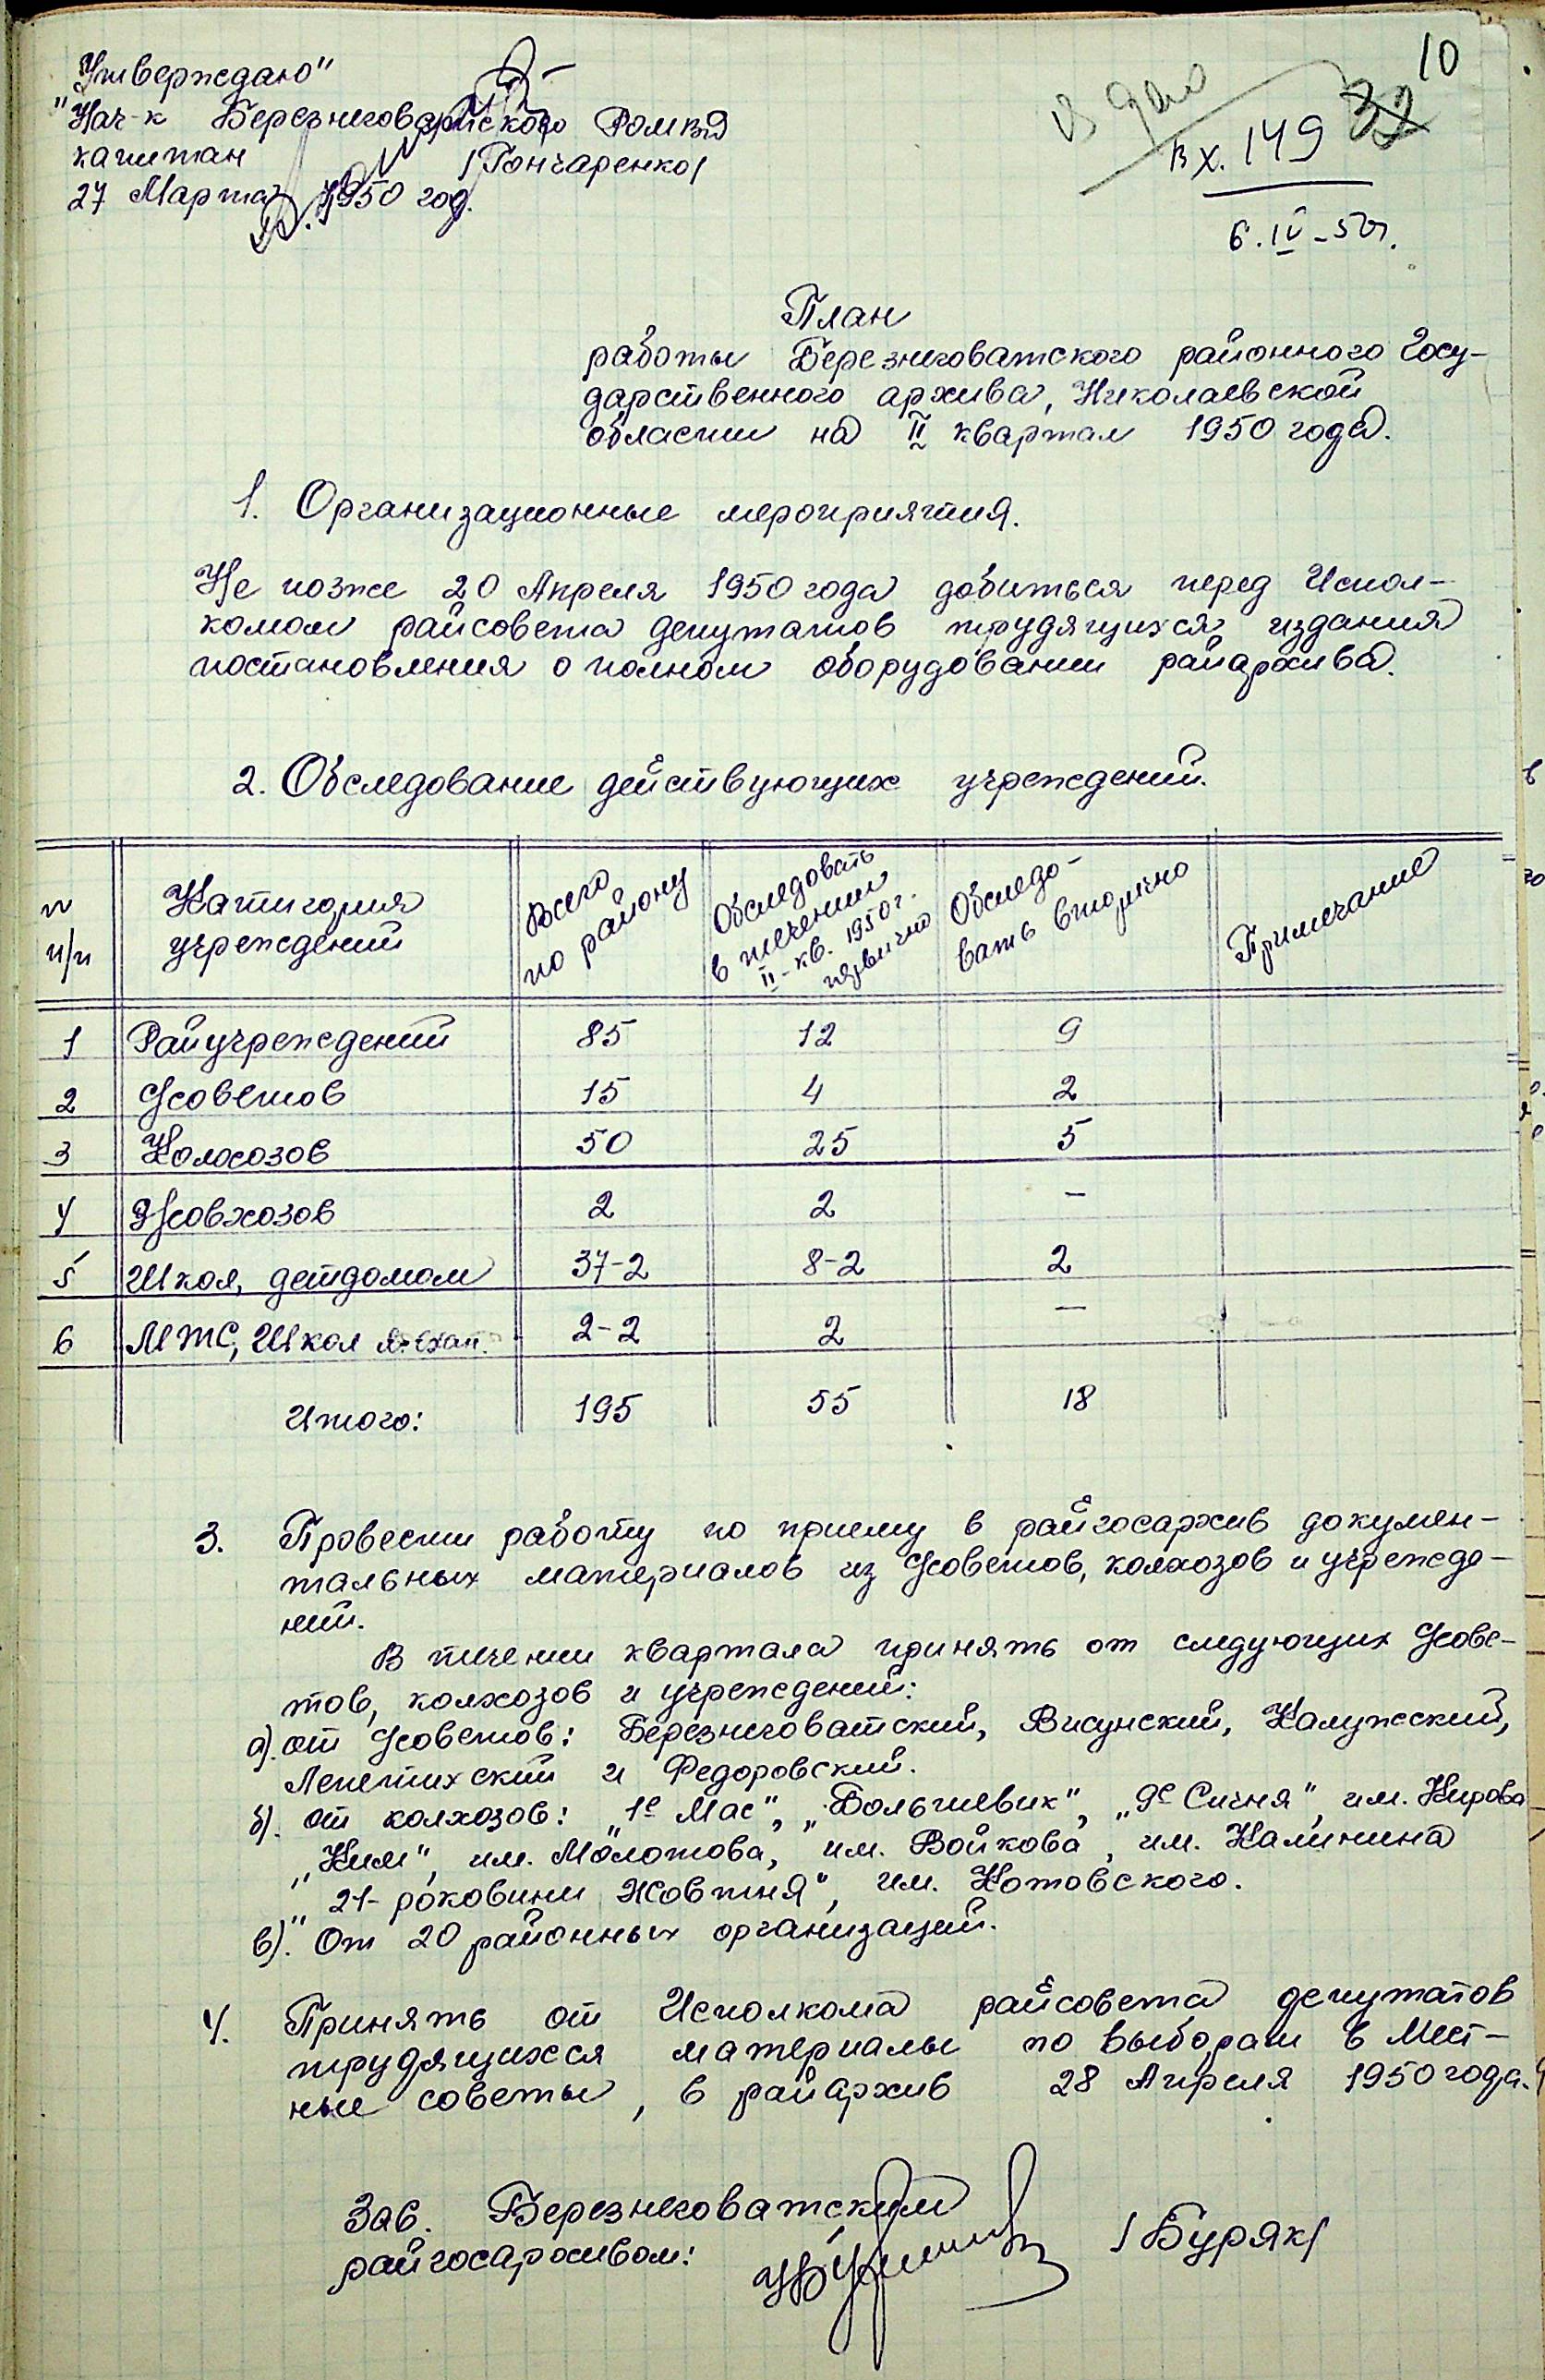 10
"Утверждаю"
"Нач-к Березнеговатского РОМВД
капитан /Гончаренко/
27 Марта 1950 год.
В дело
32
вх. 149
6.IV-50г.
План
работы Березнеговатского районного Госу-
дарственного архива, Николаевской
области на II квартал 1950 года.
1. Организационные мероприятия.
Не позже 20 Апреля 1950 года добиться перед Испол-
комом райсовета депутатов трудящихся издания
постановления о полном оборудовании райархива.
2. Обследование действующих учреждений.
№ п/п | Категория учреждений | Всего по району | Обследовать в течении II-кв. 1950г. | Обследо-вать вторично | Примечание
1 Райучреждений 85 12 9
2 С/советов 15 4 2
3 Колхозов 50 25 5
4 Совхозов 2 2 –
5 Школ, детдомом 37-2 8-2 2
6 МТС, Школ 2-2 2 –
Итого: 195 55 18
3. Провести работу по приему в райгосархив докумен-
тальных материалов из С/советов, колхозов и учрежде-
ний.
В течении квартала принять от следующих С/сове-
тов, колхозов и учреждений:
а). от С/советов: Березнеговатский, Висунский, Калужский,
Лепетихский и Федоровский.
б). от колхозов: "1е Мая", "Большевик", "9е Сичня", им. Кирова
"Ким", им. Молотова, им. Войкова, им. Калинина
"21-роковини Жовтня", им. Котовского.
в). От 20 районных организаций.
4. Принять от Исполкома райсовета депутатов
трудящихся материалы по выборам в Мест-
ные советы, в райархив 28 Апреля 1950 года.
Зав. Березнеговатским
райгосархивом: /Буряк/